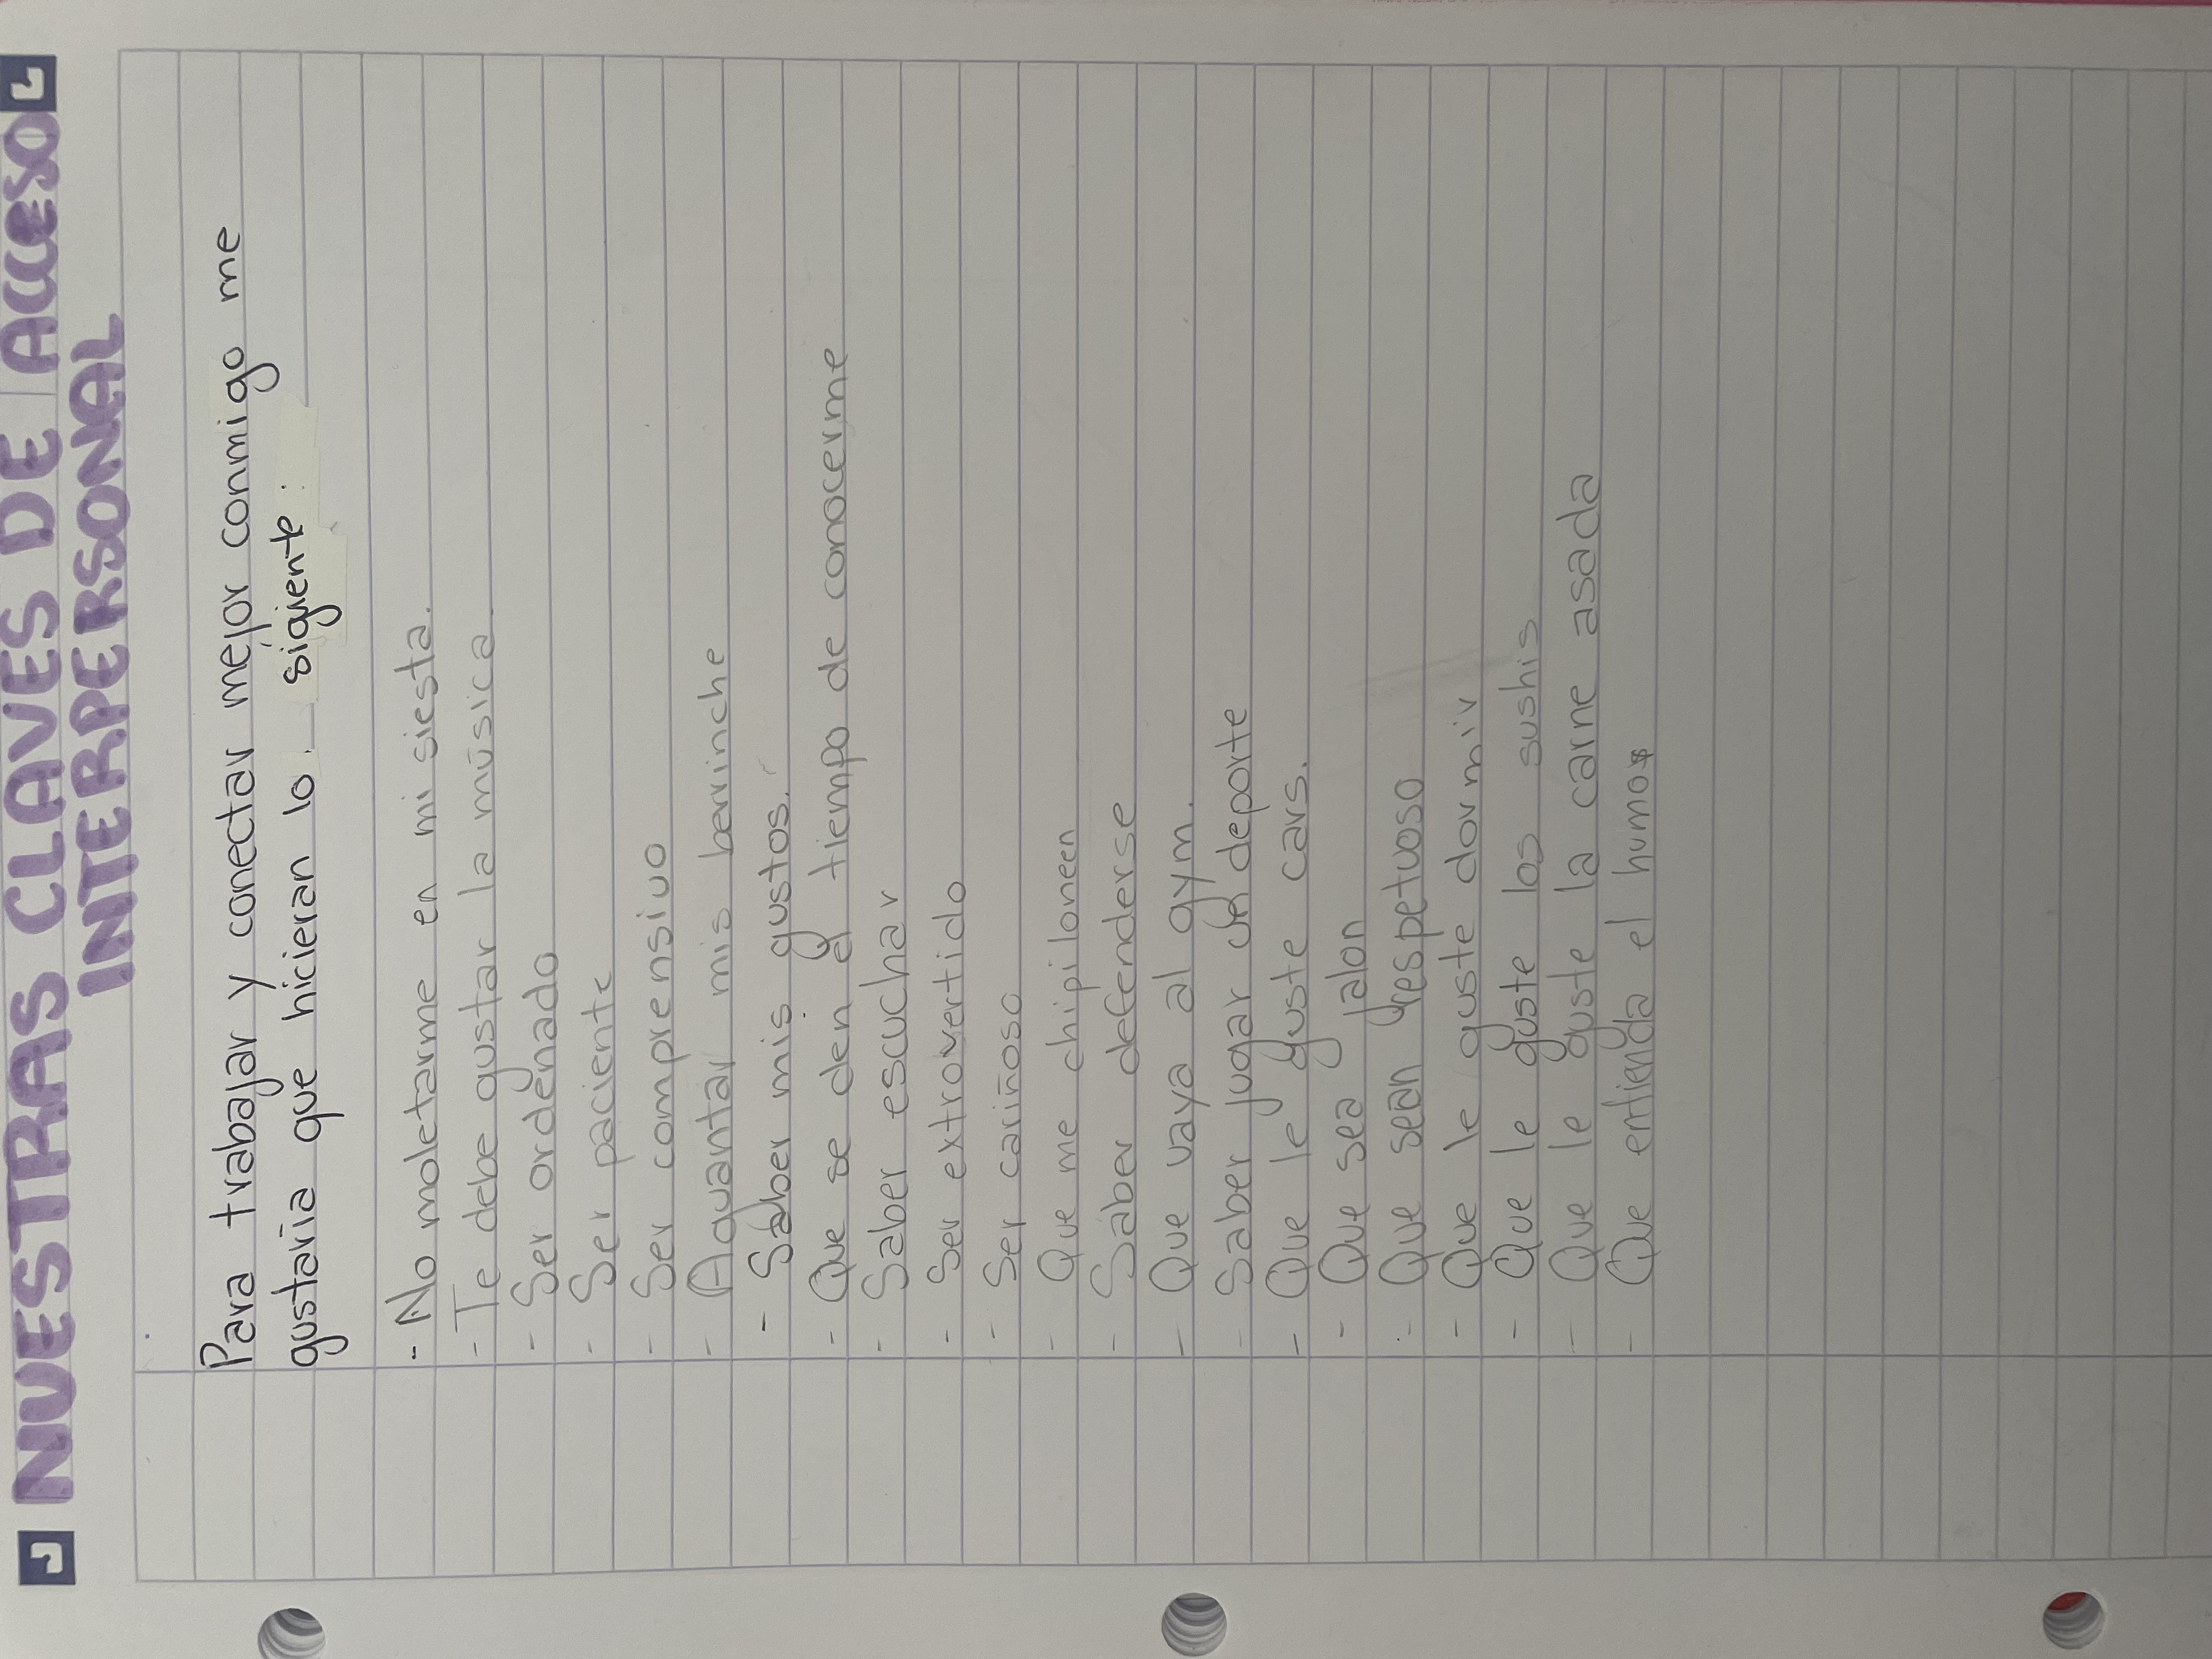 NUESTRAS CLAVES DE ACCESO
INTERPERSONAL
Para trabajar y conectar mejor conmigo me
gustaría que hicieran lo siguiente:
- No moletarme en mi siesta.
- Te debe gustar la música
- Ser ordenado
- Ser paciente
- Ser comprensivo
- Aguantar mis berrinche
- Saber mis gustos.
- Que se den el tiempo de conocerme
- Saber escuchar
- Ser extrovertido
- Ser cariñoso
- Que me chipiloneen
- Saber defenderse
- Que vaya al gym.
- Saber jugar un deporte
- Que le guste cars.
- Que sea jalon
- Que sean respetuoso
- Que le guste dormir
- Que le guste los sushis
- Que le guste la carne asada
- Que entienda el humor